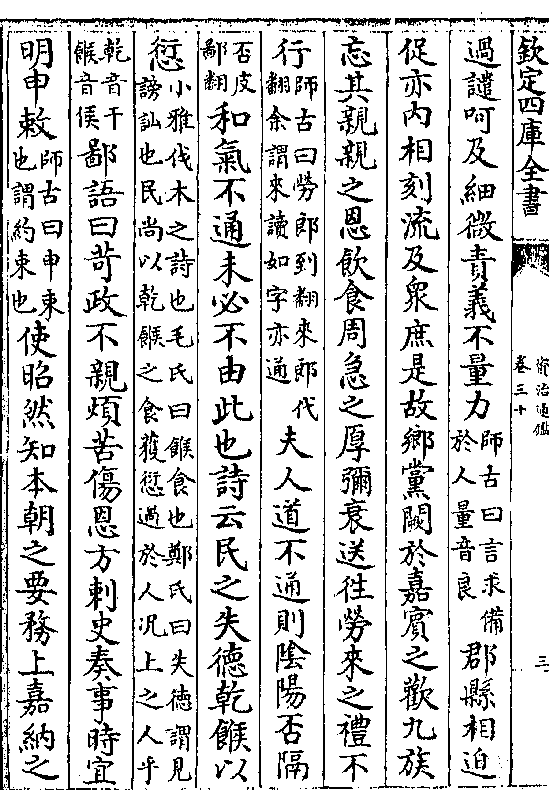 欽定四庫全書
資治通鑑
卷三十
三
過譴呵及細微責義不量力師古曰言求備於人量音良郡縣相迫
促亦内相刻流及衆庶是故鄉黨闕於嘉賓之歡九族
忘其親親之恩飲食周急之厚彌衰送徃勞來之禮不
行師古曰勞郎到翻來郎代翻余謂來讀如字亦通夫人道不通則陰陽否隔
否皮鄙翻和氣不通未必不由此也詩云民之失德乾餱以
愆小雅伐木之詩也毛氏曰餱食也鄭氏曰失德謂見謗訕也民尚以乾餱之食獲愆過於人况上之人乎
乾音干餱音侯鄙語曰苛政不親煩苦傷恩方刺史奏事時宜
明申敕師古曰申束也謂約束也使昭然知本朝之要務上嘉納之